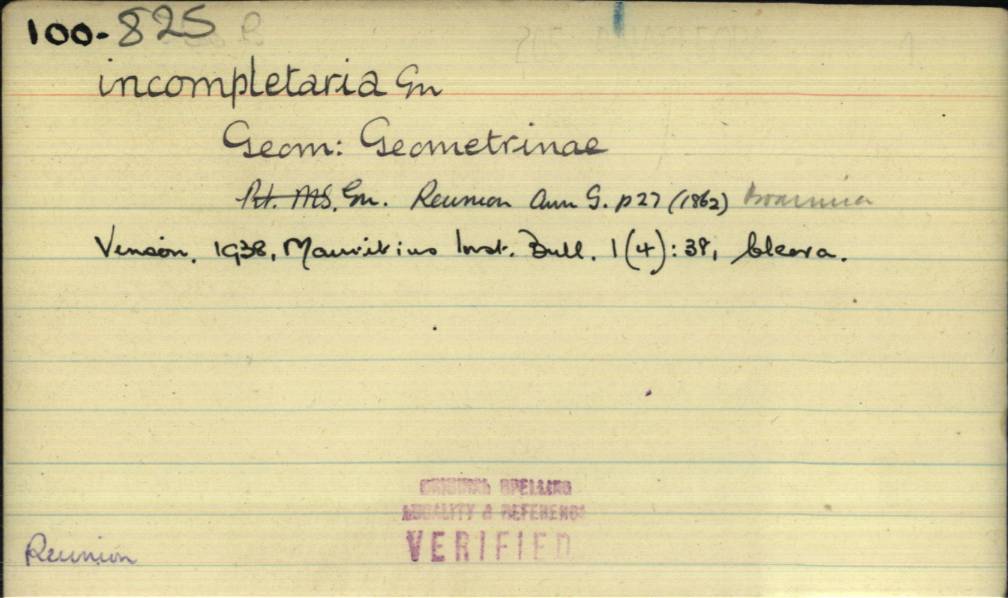 100-825
incompletaria Gn
Geom: Geometrinae
Pt. MS. Gn. Reunion Ann G. p27 (1862) boarmia
Vinson. 1938, Mauritius Inst. Bull. 1(4):38, Cleora.
ORIGINAL SPELLING
LOCALITY & REFERENCE
VERIFIED
Reunion